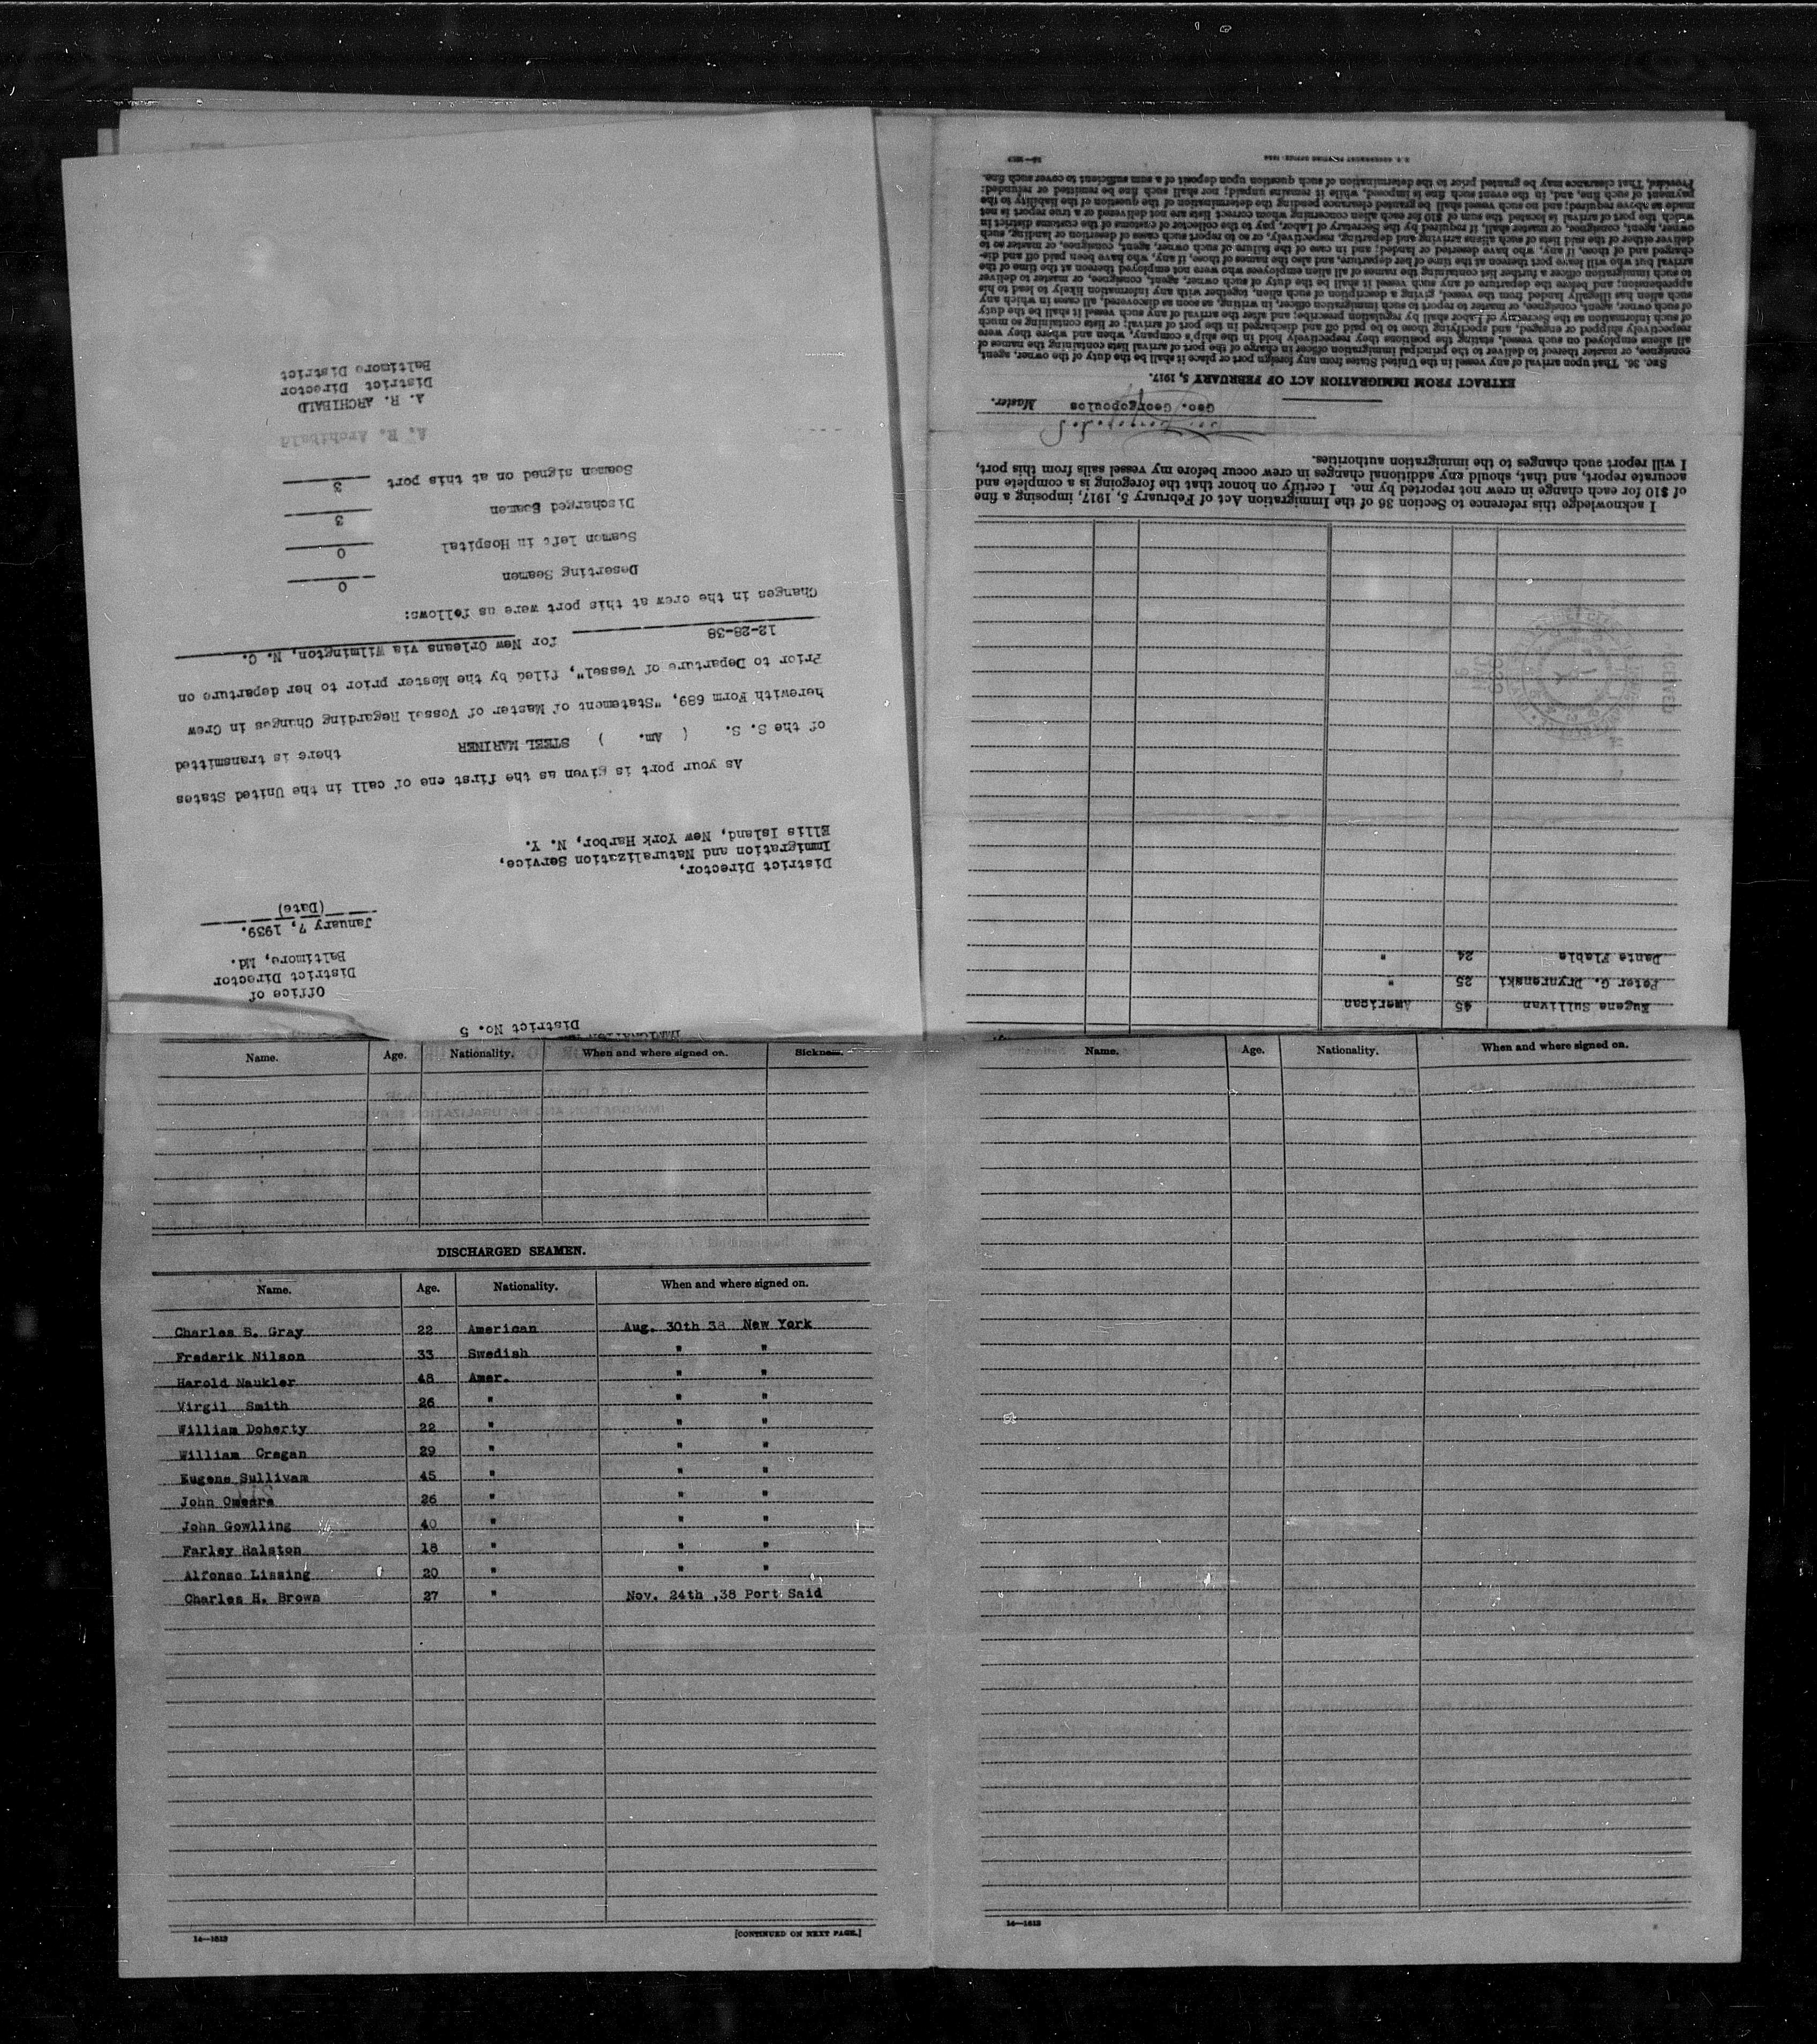 District No. 5
Office of
District Director
Baltimore, Md.
January 7, 1939.
(Date)
District Director,
Immigration and Naturalization Service,
Ellis Island, New York Harbor, N. Y.
As your port is given as the first one of call in the United States
of the S. S. ( Am. ) STEEL MARINER there is transmitted
herewith Form 689, "Statement of Master of Vessel Regarding Changes in Crew
Prior to Departure of Vessel", filed by the Master prior to her departure on
12-28-38 for New Orleans via Wilmington, N. C.
Changes in the crew at this port were as follows:
Deserting Seamen 0
Seamen left in Hospital 0
Discharged Seamen 3
Seamen signed on at this port 3
A. R. Archibald
A. R. ARCHIBALD
District Director
Baltimore District
Eugene Sullivan 45 American
Peter G. 25 "
Dante Flabla 24 "
I acknowledge this reference to Section 36 of the Immigration Act of February 5, 1917, imposing a fine
of $10 for each change in crew not reported by me. I certify on honor that the foregoing is a complete and
accurate report, and that, should any additional changes in crew occur before my vessel sails from this port,
I will report such changes to the immigration authorities.
Geo. Georgopoulos Master.
EXTRACT FROM IMMIGRATION ACT OF FEBRUARY 5, 1917.
SEC. 36. That upon arrival of any vessel in the United States from any foreign port or place it shall be the duty of the owner, agent,
consignee, or master thereof to deliver to the principal immigration officer in charge of the port of arrival lists containing the names of
all aliens employed on such vessel, stating the positions they respectively hold in the ship's company, when and where they were
respectively shipped or engaged, and specifying those to be paid off and discharged in the port of arrival; or lists containing so much
of such information as the Secretary of Labor shall by regulation prescribe; and after the arrival of any such vessel it shall be the duty
of such owner, agent, consignee, or master to report to such immigration officer, in writing, as soon as discovered, all cases in which any
such alien has illegally landed from the vessel, giving a description of such alien, together with any information likely to lead to his
apprehension; and before the departure of any such vessel it shall be the duty of such owner, agent, consignee, or master to deliver
to such immigration officer a further list containing the names of all alien employees who were not employed thereon at the time of the
arrival but who will leave port thereon at the time of her departure, and also the names of those, if any, who have been paid off and dis-
charged and of those, if any, who have deserted or landed; and in case of the failure of such owner, agent, consignee, or master so to
deliver either of the said lists of such aliens arriving and departing, respectively, or so to report such cases of desertion or landing, such
owner, agent, consignee, or master shall, if required by the Secretary of Labor, pay to the collector of customs of the customs district in
which the port of arrival is located the sum of $10 for each alien concerning whom correct lists are not delivered or a true report is not
made as above required; and no such vessel shall be granted clearance pending the determination of the question of the liability to the
payment of such fine, and, in the event such fine is imposed, while it remains unpaid; nor shall such fine be remitted or refunded:
Provided, That clearance may be granted prior to the determination of such question upon deposit of a sum sufficient to cover such fine.
Name. Age. Nationality. When and where signed on. Sickness.
DISCHARGED SEAMEN.
Name. Age. Nationality. When and where signed on.
Charles S. Gray 22 American Aug. 30th 38 New York
Frederik Nilson 33 Swedish " "
Harold Naukler 48 Amer. " "
Virgil Smith 26 " " "
William Doherty 22 " " "
William Cragan 29 " " "
Eugene Sullivam 45 " " "
John Omeara 26 " " "
John Gowlling 40 " " "
Farley Ralston 18 " " "
Alfonso Lissing 20 " " "
Charles H. Brown 27 " Nov. 24th ,38 Port Said
14—1613
[CONTINUED ON NEXT PAGE.]
Name. Age. Nationality. When and where signed on.
14—1613